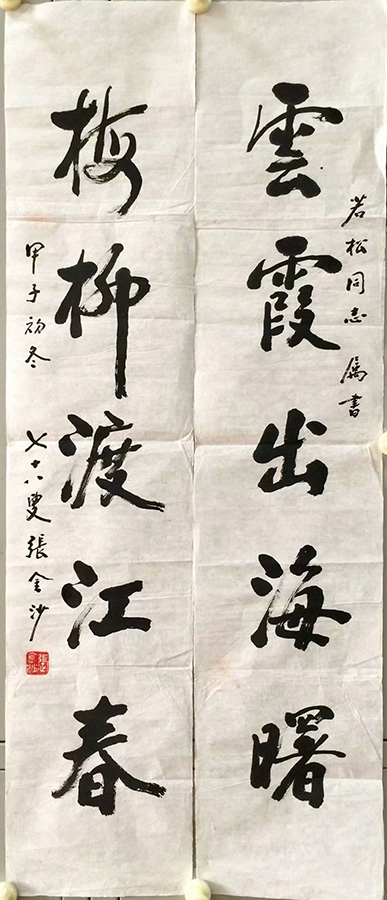 雲霞出海曙
若松同志 属書
梅柳渡江春
甲子初冬 七十八叟張金沙